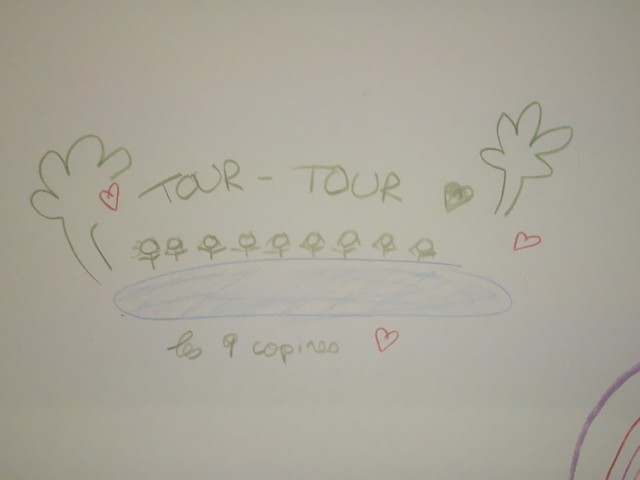 TOUR - TOUR
les 9 copines